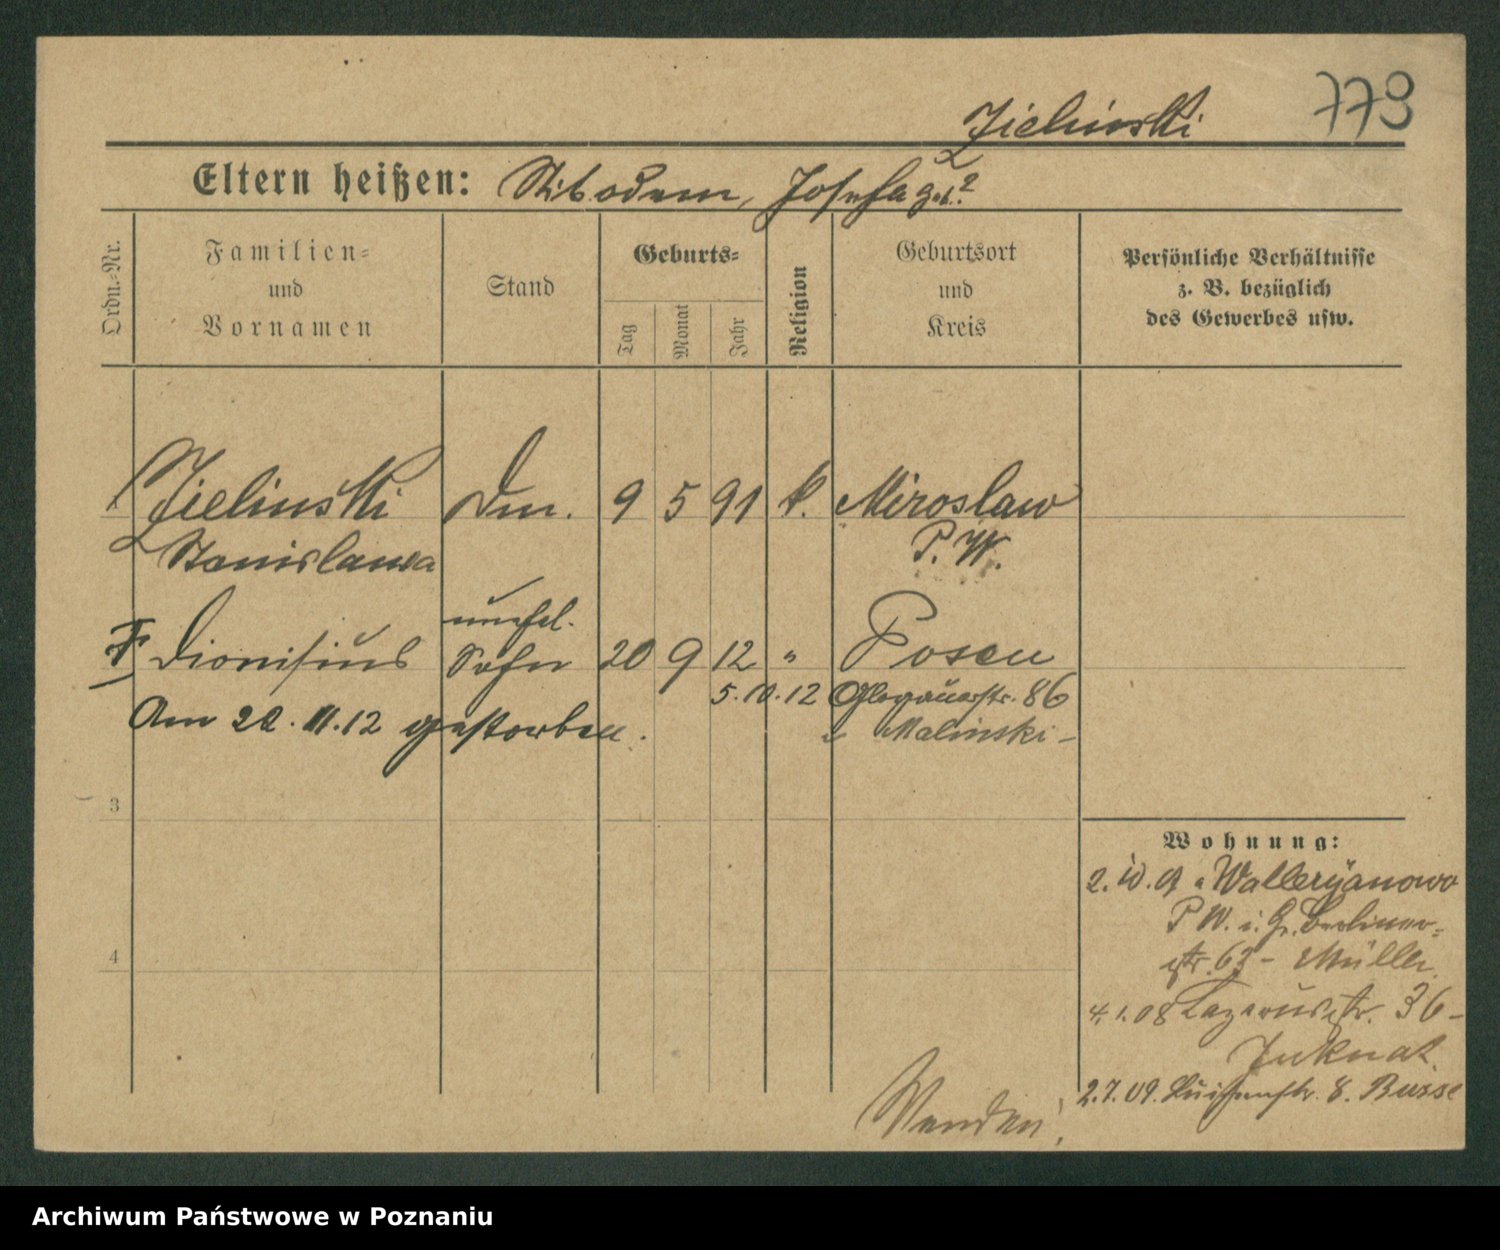 779
Zielinski
Eltern heißen: Josefa geb.?
Ordn.-Nr.
Familien-
und
Vornamen
Stand
Geburts-
Tag
Monat
Jahr
Religion
Geburtsort
und
Kreis
Persönliche Verhältnisse
z. B. bezüglich
des Gewerbes usw.
1 Zielinski 9 5 91 k. Miroslaw
Stanislawa P. W.
unehel.
Dionisius Sohn 20 9 12 " Posen
5.10.12 Glogauerstr. 86
Am 22.11.12 gestorben. Malinski-
3
4
Wohnung:
2.10.07 Wallerÿanowo
P. W. i. G. Berliner-
str. 63- Müller
4.1.08 Lazarusstr. 36-
Juknat
2.7.09. Luisenstr. 8. Busse
Wenden!
Archiwum Państwowe w Poznaniu